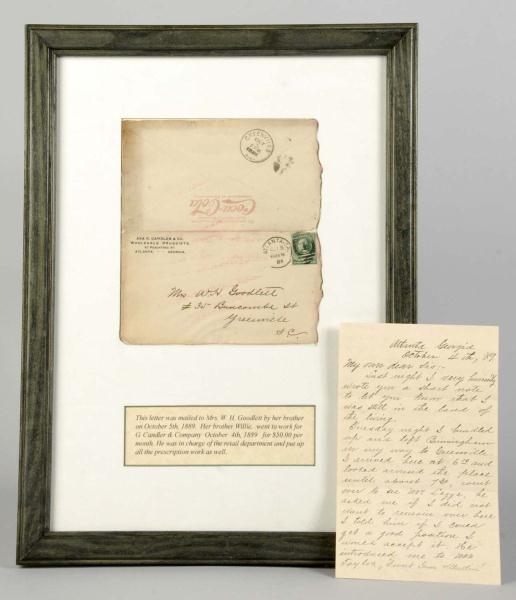 GREENVILLE
OCT
Coca-Cola
ASA G. CANDLER & CO.
WHOLESALE DRUGGISTS,
47 PEACHTREE ST.
ATLANTA, - - GEORGIA.
ATLANTA
Mrs. W. H. Goodlett
# 35 Buncombe St
Greenville
S.C.
This letter was mailed to Mrs. W. H. Goodlett by her brother
on October 5th, 1889. Her brother Willie, went to work for
G. Candler & Company October 4th, 1899 for $50.00 per
month. He was in charge of the retail department and put up
all the prescription work as well.
Atlanta Georgia
October 4th, '89
My own dear Sis:-
Last night I very hurriedly
wrote you a short note
to let you know that I
was still in the land of
the living.
Tuesday night I bundled
up and left Birmingham
on my way to Greenville
I arrived here at 6 and
looked around the place
until about went
over to see Mr he
asked me if I did not
want to remain over here
I told him if I could
get a good position I
would accept it. He
introduced me to
Taylor,